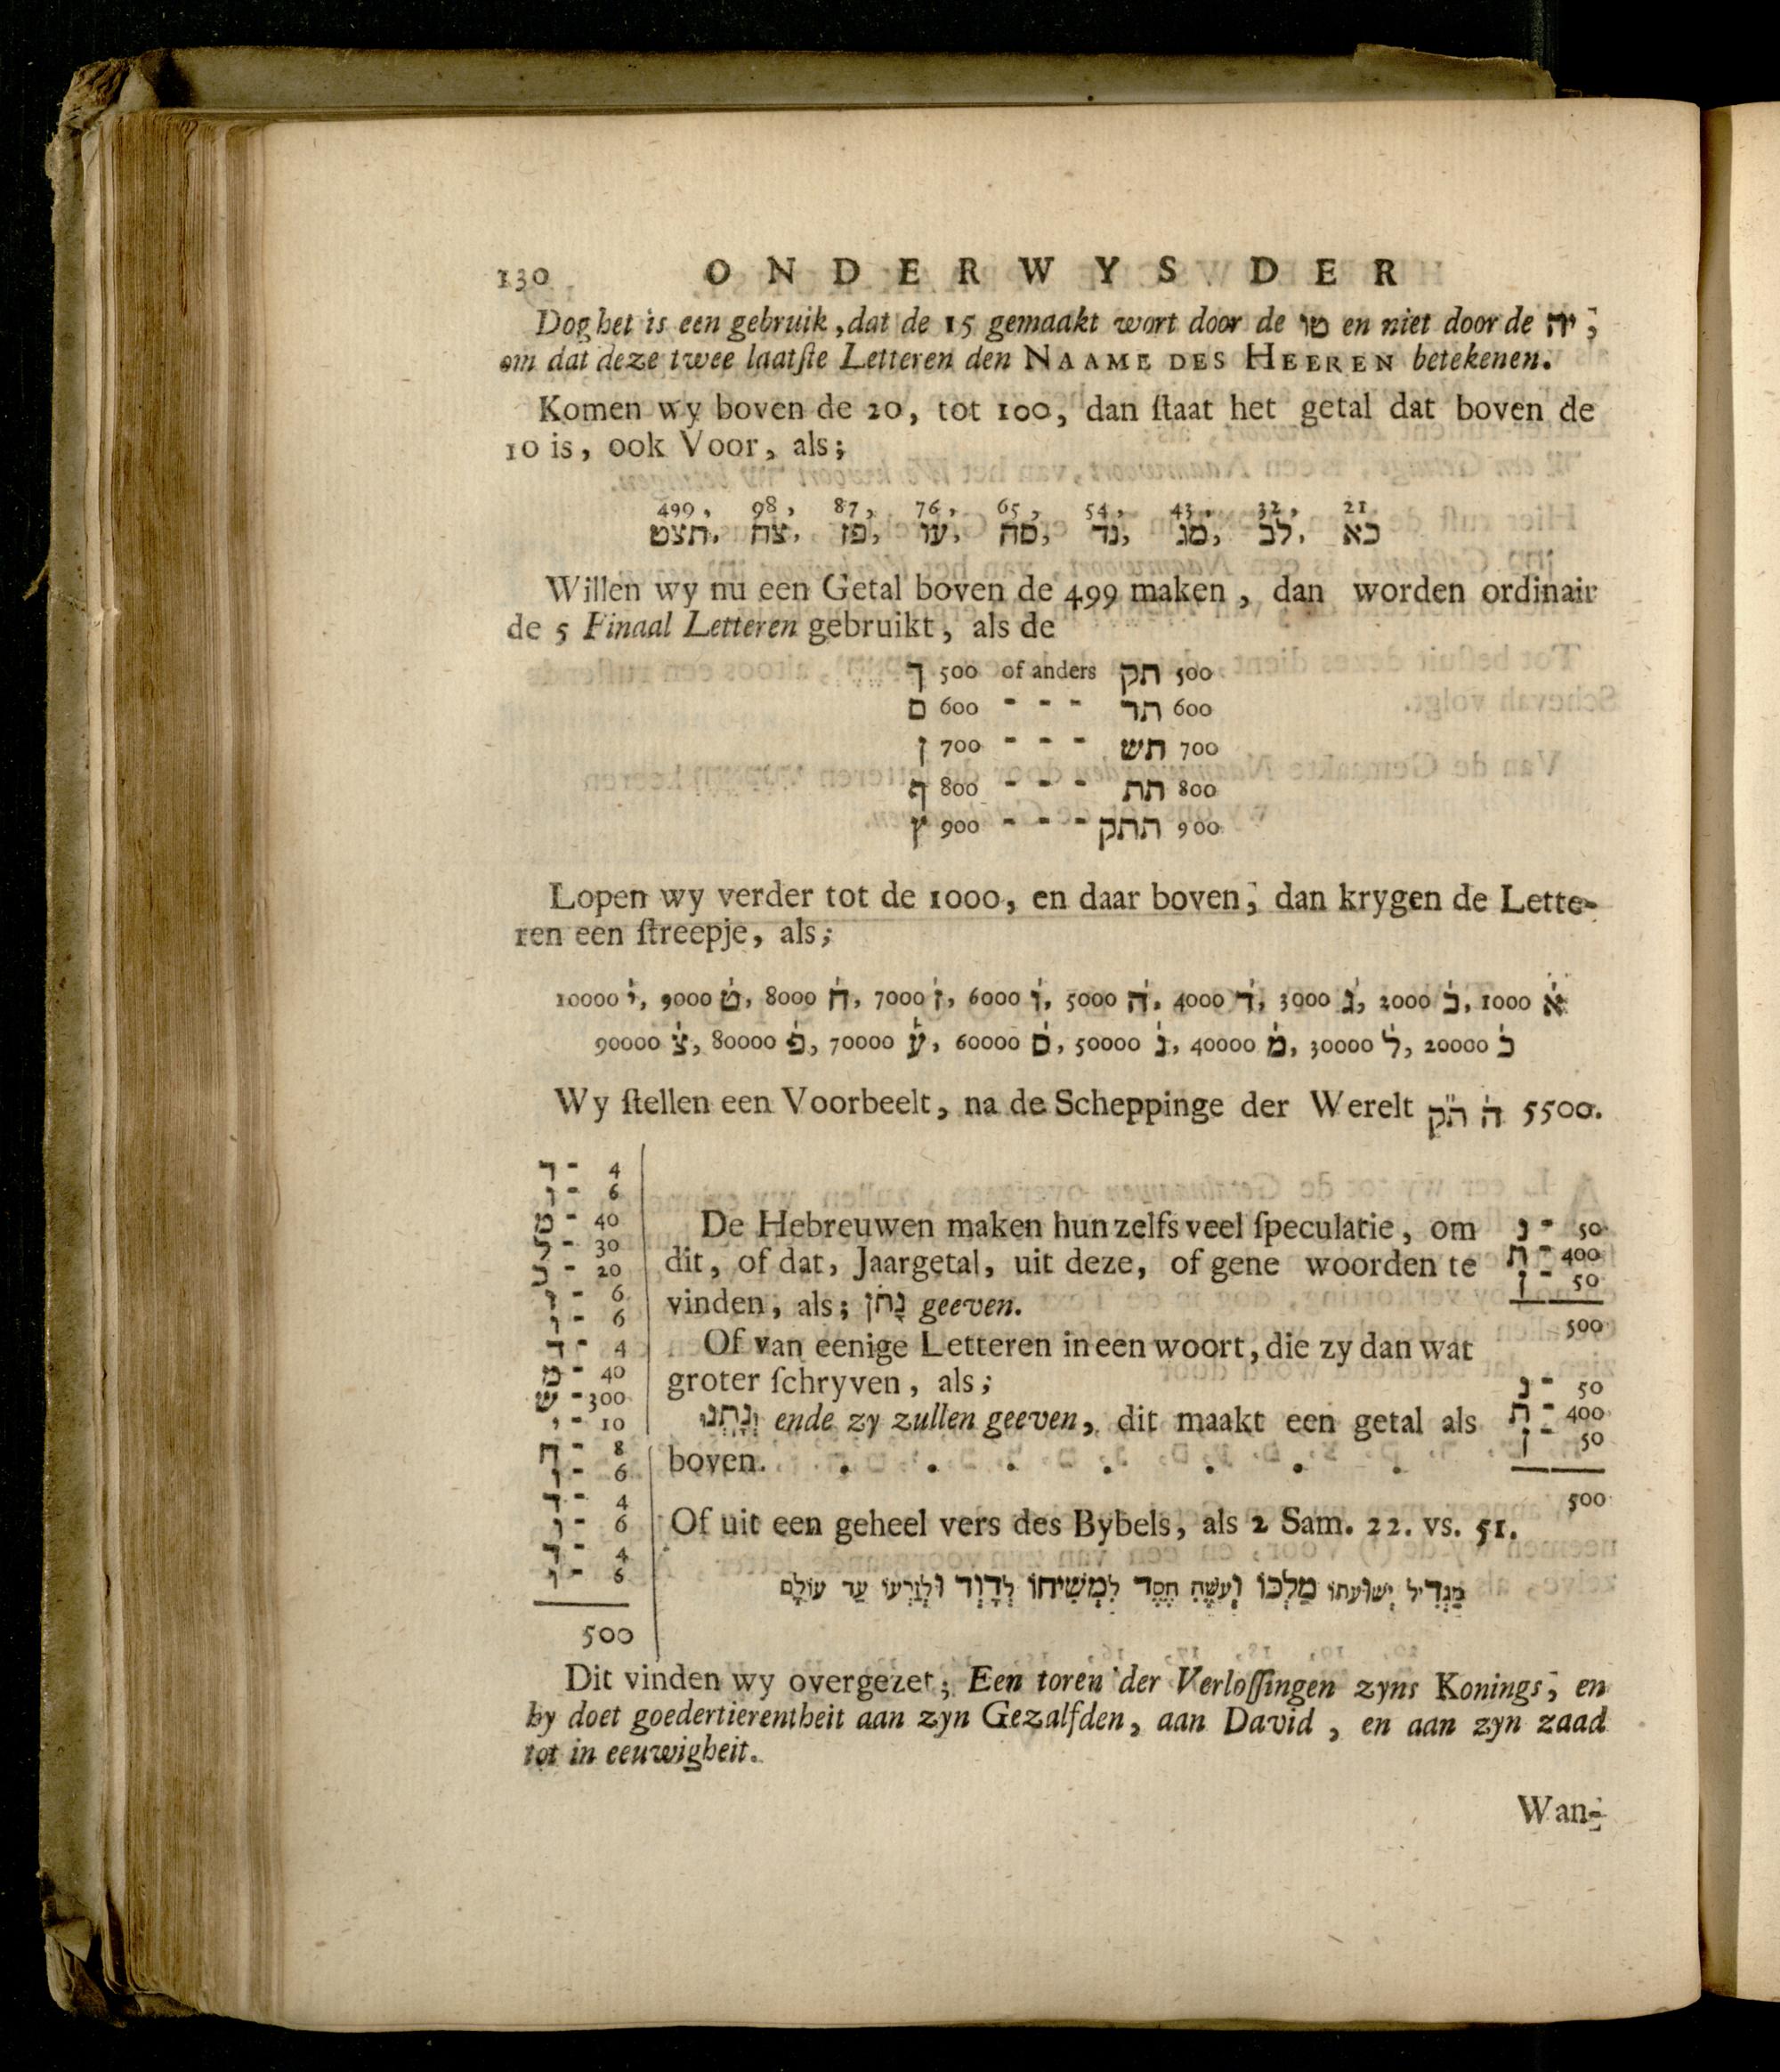 130 ONDERWYS DER
Dog het is een gebruik, dat de 15 gemaakt wort door de טו en niet door de יה;
om dat deze twee laatſte Letteren den NAAME DES HEEREN betekenen.
Komen wy boven de 20, tot 100, dan ſtaat het getal dat boven de
10 is, ook Voor, als;
499, 98, 87, 76, 65, 54, 43, 32, 21
כא לב, מג, נד, סה, עו, פז, צח, תצט,
Willen wy nu een Getal boven de 499 maken, dan worden ordinair
de 5 Finaal Letteren gebruikt, als de
ך 500 of anders תק 500
ם 600 - - - תר 600
ן 700 - - - תש 700
ף 800 - - - תת 800
ץ 900 - - - תתק 900
Lopen wy verder tot de 1000, en daar boven; dan krygen de Lette-
ren een ſtreepje, als;
10000 י֗, 9000 ט֗, 8000 ח֗, 7000 ז֗, 6000 ו֗, 5000 ה֗, 4000 ד֗, 3000 ג֗, 2000 ב֗, 1000 א֗
90000 צ֗, 80000 פ֗, 70000 ע֗, 60000 ס֗, 50000 נ֗, 40000 מ֗, 30000 ל֗, 20000 כ֗
Wy ſtellen een Voorbeelt, na de Scheppinge der Werelt ה֗ ת״ק 5500.
ד - 4
ו - 6
מ - 40
ל - 30
כ - 20
ו - 6
ו - 6
ד - 4
מ - 40
ש - 300
י - 10
ח - 8
ו - 6
ד - 4
ו - 6
ד - 4
ו - 6
500
De Hebreuwen maken hun zelfs veel ſpeculatie, om
dit, of dat, Jaargetal, uit deze, of gene woorden te
vinden, als; נָתֹן geeven.
נ - 50
ת - 400
ן - 50
500
Of van eenige Letteren in een woort, die zy dan wat
groter ſchryven, als;
וְנָתְנוּ ende zy zullen geeven, dit maakt een getal als
boven. . . . . . . .
נ - 50
ת - 400
ן - 50
500
Of uit een geheel vers des Bybels, als 2 Sam. 22. vs. 51.
מַגְדִּיל יְשׁוּעתוֹ מַלְכּוֹ וְעֹשֶׂה חֶסֶד לִמְשִׁיחוֹ לְדָוִד וּלְזַרְעוֹ עַד עוֹלָם
Dit vinden wy overgezet; Een toren der Verloſſingen zyns Konings; en
hy doet goedertierentheit aan zyn Gezalfden, aan David, en aan zyn zaad
tot in eeuwigheit.
Wan-